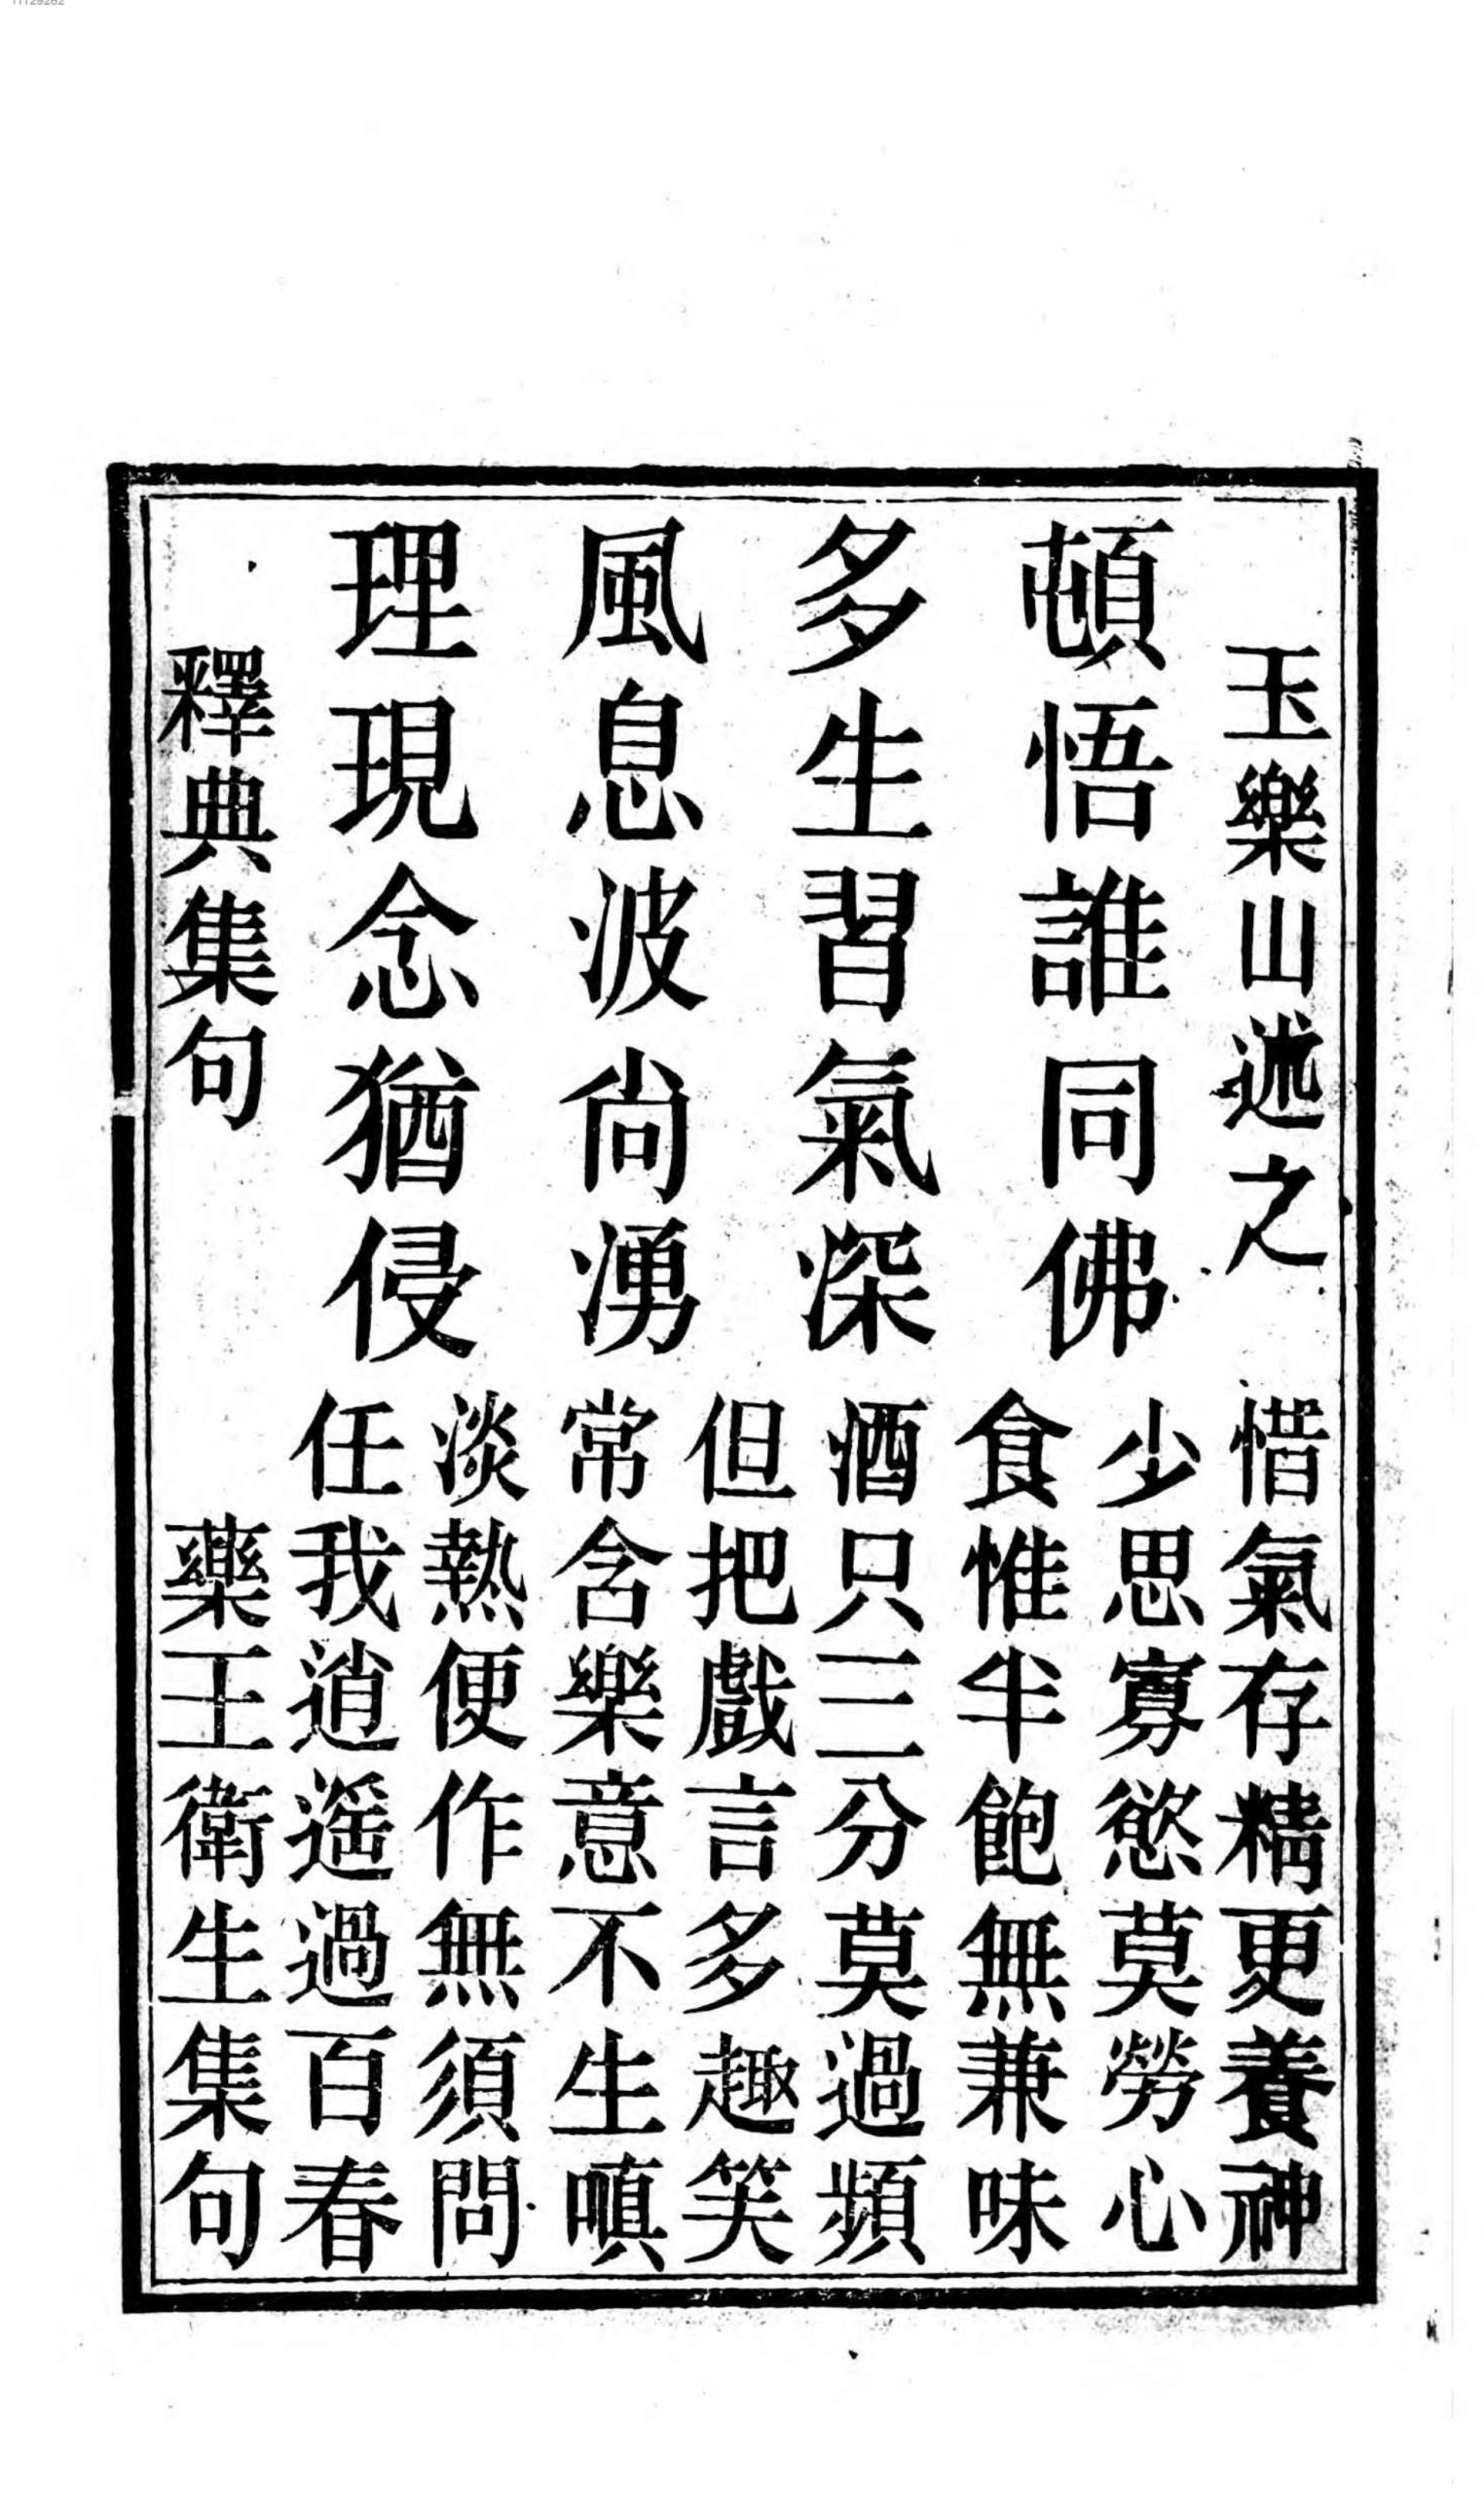 玉樂山述之
頓悟誰同佛
多生習氣深
風息波尚湧
理現念猶侵
釋典集句
惜氣存精更養神
少思寡慾莫勞心
食惟半飽無兼味
酒只三分莫過頻
但把戲言多趣笑
常含樂意不生嗔
淡熱便作無須問
任我逍遥過百春
藥王衛生集句